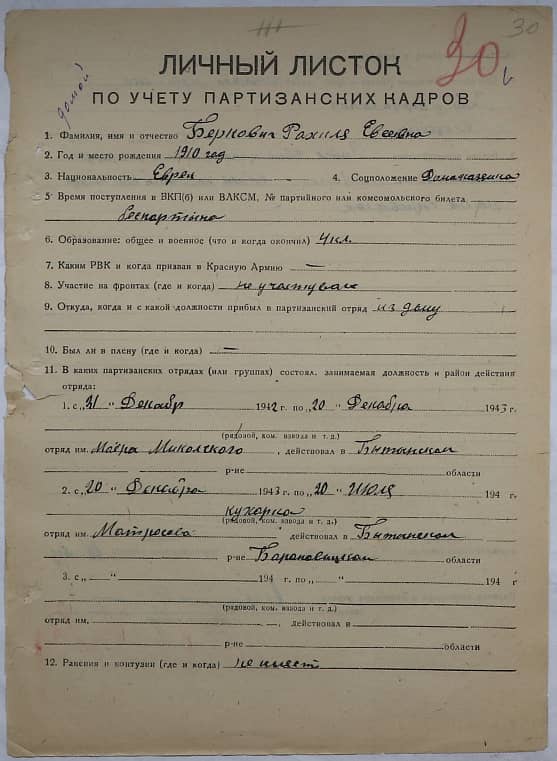 30
30
ЛИЧНЫЙ ЛИСТОК
ПО УЧЕТУ ПАРТИЗАНСКИХ КАДРОВ
домой
1. Фамилия, имя и отчество Беркович Рахиля Евсеевна
2. Год и место рождения 1910 год
3. Национальность Еврей 4. Соцположение Домохазяика
5 Время поступления в ВКП(б) или ВЛКСМ, № партийного или комсомольского билета
беспартийна
6. Образование: общее и военное (что и когда окончил) 4 кл.
7. Каким РВК и когда призван в Красную Армию —
8. Участие на фронтах (где и когда) не участвувала
9. Откуда, когда и с какой должности прибыл в партизанский отряд из дому
10. Был ли в плену (где и когда) —
11. В каких партизанских отрядах (или группах) состоял, занимаемая должность и район действия
отряда:
1. с „21 " Декабр 1942 г. по „20 " Декабра 1943 г.
(рядовой, ком. взвода и т. д.)
отряд им. Маёра Миколского, действовал в Бытынском
р-не области
2. с „20 " Декабра 1943 г. по „20 " Июля 194 г.
кухарка
(рядовой, ком. взвода и т. д.)
отряд им. Матросова действовал в Бытынском
р-не Барановицкой области
3. с „ — " 194 г. по „ — " 194 г
(рядовой, ком. взвода и т. д.)
отряд им. , действовал в
р-не области
12. Ранения и контузии (где и когда) не имеет